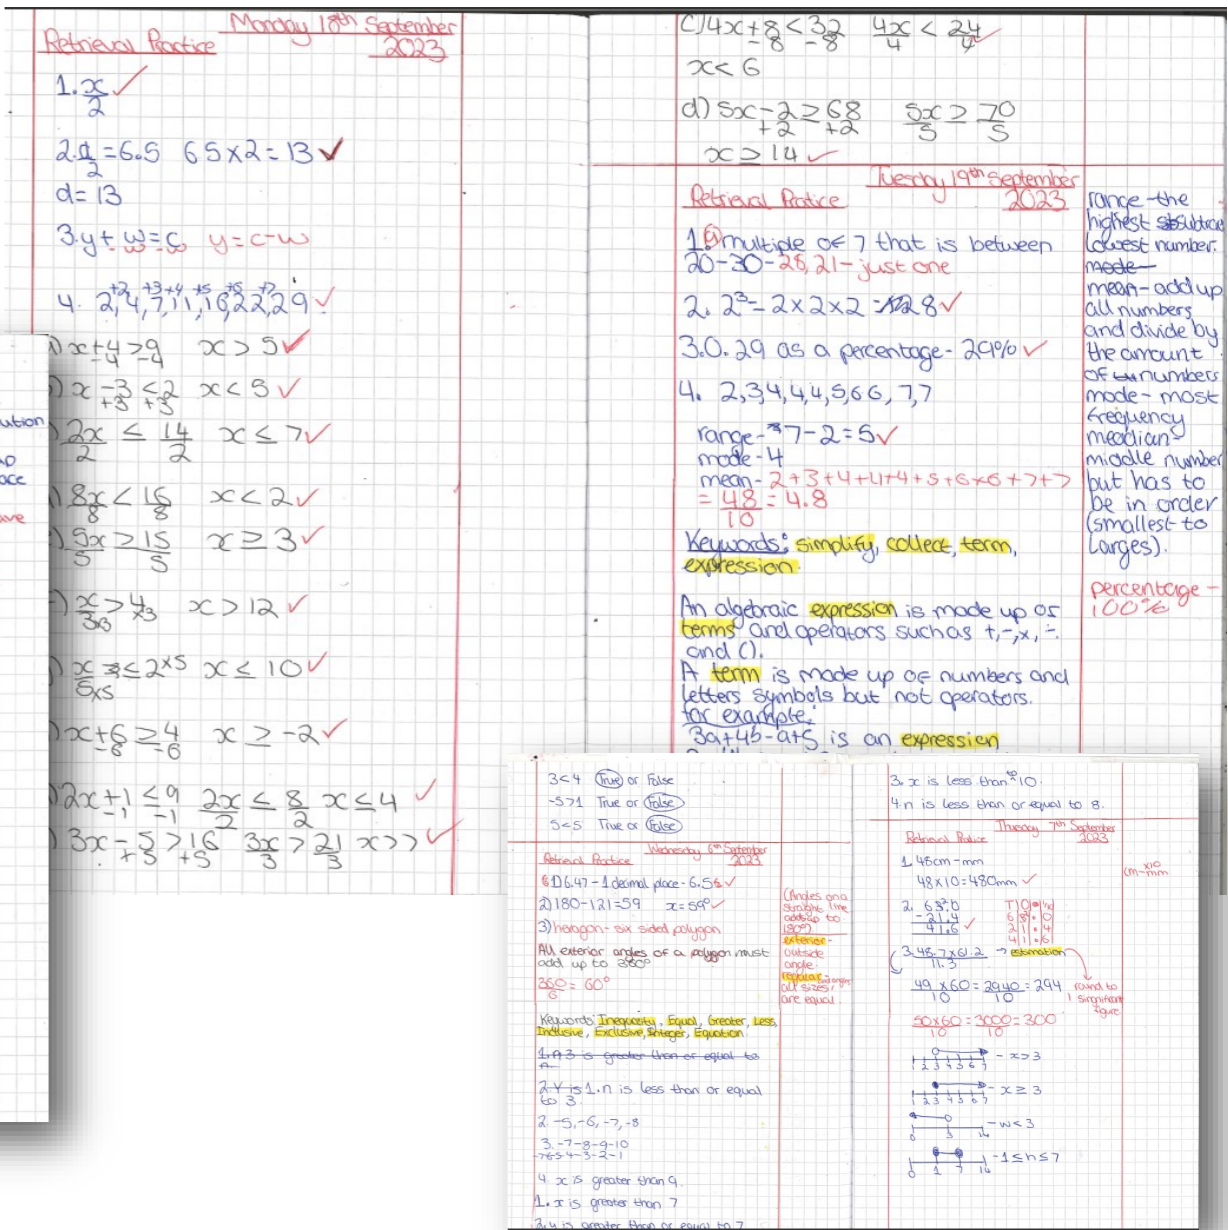 Monday 18th September
Retrieval Practice 2023
1. x/2 ✓
2. d/2 = 6.5 6.5 x 2 = 13 ✓
d = 13
3. y + w = c y = c - w
-w -w
+2 +3 +4 +5 +7
4. 2, 4, 7, 11, 16, 22, 29 ✓
) x + 4 > 9 x > 5 ✓
-4 -4
) x - 3 < 2 x < 5 ✓
+3 +3
) 2x/2 ≤ 14/2 x ≤ 7 ✓
) 8x/8 < 16/8 x < 2 ✓
) 5x/5 ≥ 15/5 x ≥ 3 ✓
) x/3 > 4 x > 12 ✓
x3 x3
) x/5 ≤ 2 x5 x ≤ 10 ✓
x5
) x + 6 ≥ 4 x ≥ -2 ✓
-6 -6
) 2x + 1 ≤ 9 2x/2 ≤ 8/2 x ≤ 4 ✓
-1 -1
) 3x - 5 > 16 3x/3 > 21/3 x > 7 ✓
+5 +5
ution
ace
c) 4x + 8 < 32 4x/4 < 24/4 ✓
-8 -8
x < 6
d) 5x - 2 ≥ 68 5x/5 ≥ 70/5
+2 +2
x ≥ 14 ✓
Tuesday 19th September
Retrieval Pratice 2023
1. a multiple of 7 that is between
20-30 - 28, 21 - just one
2. 2³ = 2 x 2 x 2 = 8 ✓
3. 0.29 as a percentage - 29% ✓
4. 2,3,4,4,4,5,6 6, 7,7
range - 7 - 2 = 5 ✓
mode - 4
mean - 2+3+4+4+4+5+6+6+7+7
= 48/10 = 4.8
Keywords: simplify, collect, term,
expression.
An algebraic expression is made up of
terms and operators such as +, -, x, ÷
and ().
A term is made up of numbers and
letters symbols but not operators.
for example:
3a+4b-a+5 is an expression
range - the
highest subtract
lowest number.
mode
mean - add up
all numbers
and divide by
the amount
of numbers
mode - most
frequency
meadian -
middle number
but has to
be in order
(smallest to
larges).
percentage -
100%
3 < 4 True or False
-5 > 1 True or False
5 < 5 True or False
Wednesday 6th September
Retrieval Practice 2023
1) 6.47 - 1 decimal place - 6.5 ✓
2) 180 - 121 = 59 x = 59° ✓
3) hexagon - six sided polygon
All exterior angles of a polygon must
add up to 360°
360/6 = 60°
(Angles on a
straight line
adds up to
180°)
exterior -
outside
angle.
regular -
all sizes and angles
are equal.
Keywords: Inequality, Equal, Greater, Less,
Inclusive, Exclusive, Integer, Equation.
1. A 3 is greater than or equal to
n.
2. Y is 1. n is less than or equal
to 3.
2. -5, -6, -7, -8
3. -7 -8 -9 -10
-7 6 5 4 -3 -2 -1
4. x is greater than 9.
1. x is greater than 7
2. y is greater than or equal to 7
3. x is less than to 10.
4. n is less than or equal to 8.
Thursday 7th September
Retrieval Pratice 2023
1. 48cm - mm
48 x 10 = 480mm ✓
x10
cm - mm
2. 63.0
- 21.4
41.6 ✓
T O . 1/10
6 3 . 0
2 1 . 4
4 1 . 6
3. 48.7 x 61.2 / 11.3 → estimation
49 x 60 / 10 = 2940/10 = 294
round to
1 singnificant
figure
50 x 60 / 10 = 3000/10 = 300
1 2 3 4 5 6 7 - x > 3
1 2 3 4 5 6 7 - x ≥ 3
0 3 14 - w < 3
0 1 7 14 - 1 ≤ n ≤ 7